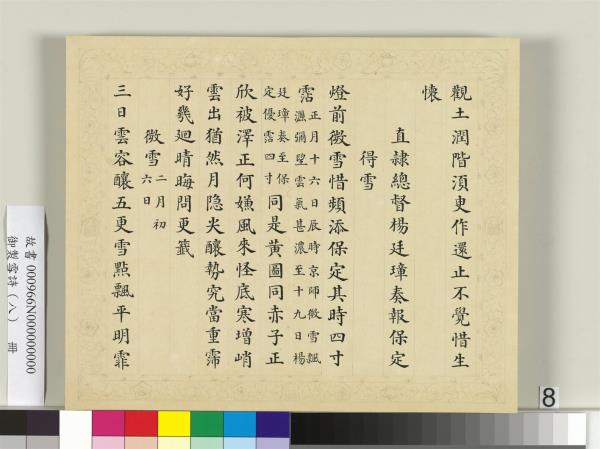 觀土潤階湏吏作還止不覺惜生
懷
直隷總督楊廷璋奏報保定
得雪
燈前微雪惜頻添保定其時四寸
霑正月十六日辰時京師微雪飄
灑彌望雲氣甚濃至十九日楊
廷璋奏至保
定優霑四寸同是黄圖同赤子正
欣被澤正何嫌風來怪底寒增峭
雲出猶然月隐尖釀勢究當重霈
好幾廻晴晦問更籤
微雪二月初
六日
三日雲容釀五更雪點飄平明霏
故書 000966N000000000
御製雪詩（八） 冊
8